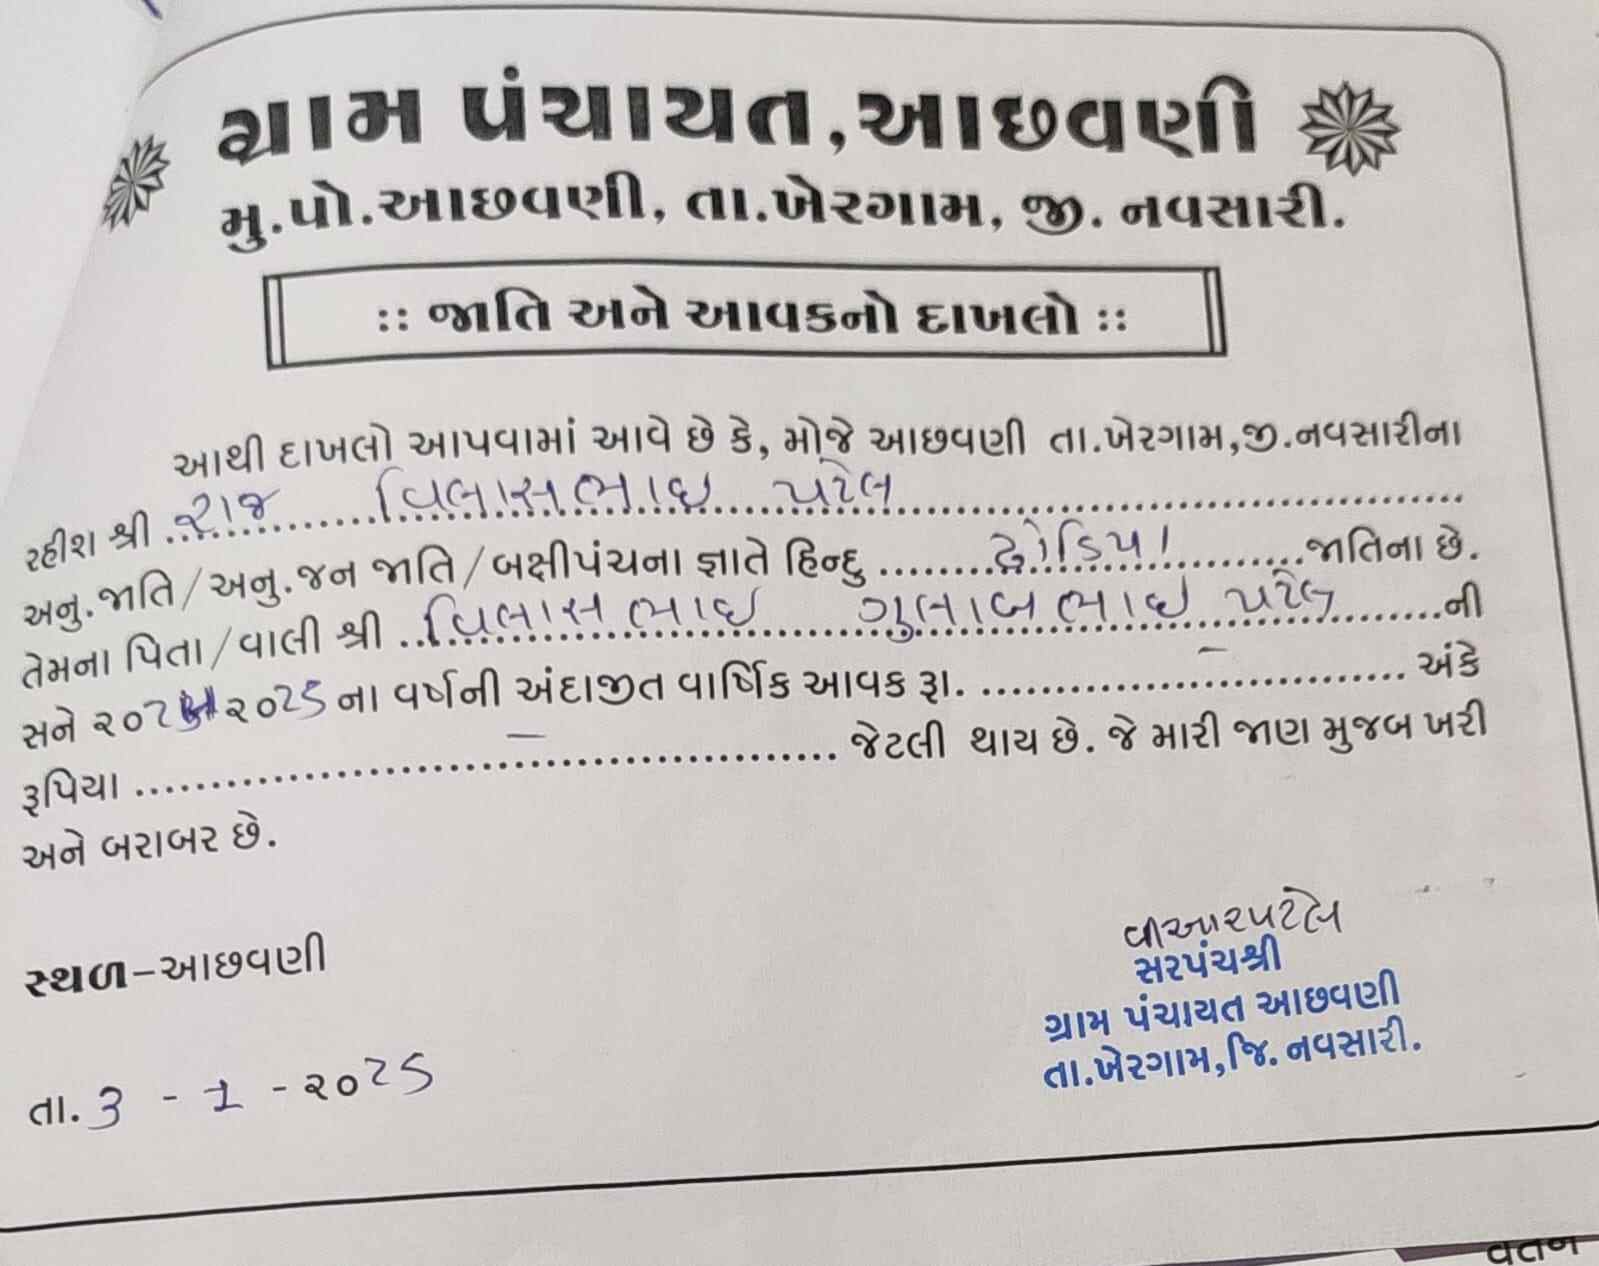 ગ્રામ પંચાયત, આછવણી
મુ.પો.આછવણી, તા.ખેરગામ, જી. નવસારી.
:: જાતિ અને આવકનો દાખલો ::
આથી દાખલો આપવામાં આવે છે કે, મોજે આછવણી તા.ખેરગામ,જી.નવસારીના
રહીશ શ્રી રાજ વિલાસભાઇ પટેલ
અનુ.જાતિ/અનુ.જન જાતિ/બક્ષીપંચના જ્ઞાતે હિન્દુ ઢોડિયા જાતિના છે.
તેમના પિતા/વાલી શ્રી વિલાસભાઇ ગુલાબભાઇ પટેલ ની
સને ૨૦૨ ૨૦૨૫ ના વર્ષની અંદાજીત વાર્ષિક આવક રૂા. – અંકે
રૂપિયા – જેટલી થાય છે. જે મારી જાણ મુજબ ખરી
અને બરાબર છે.
સ્થળ-આછવણી
વીઆરપટેલ
સરપંચશ્રી
ગ્રામ પંચાયત આછવણી
તા.ખેરગામ,જિ.નવસારી.
તા. ૩ - ૧ - ૨૦૨૫
વતન